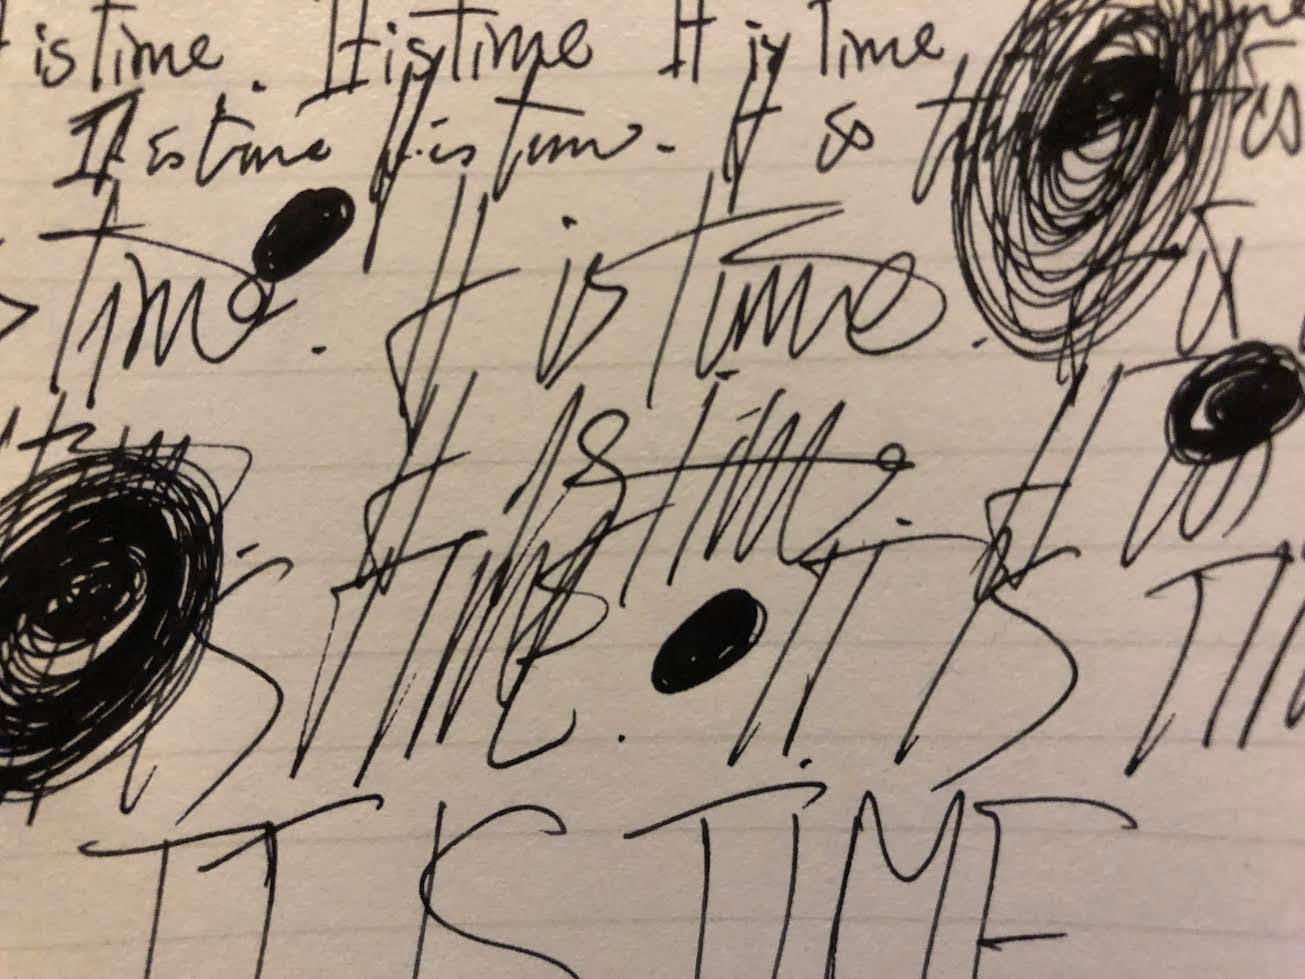 is time. It is time It is Time
It is time It is time. It is
Time. It is time.
It is time.
IS TIME. IT IS
IT IS TIME